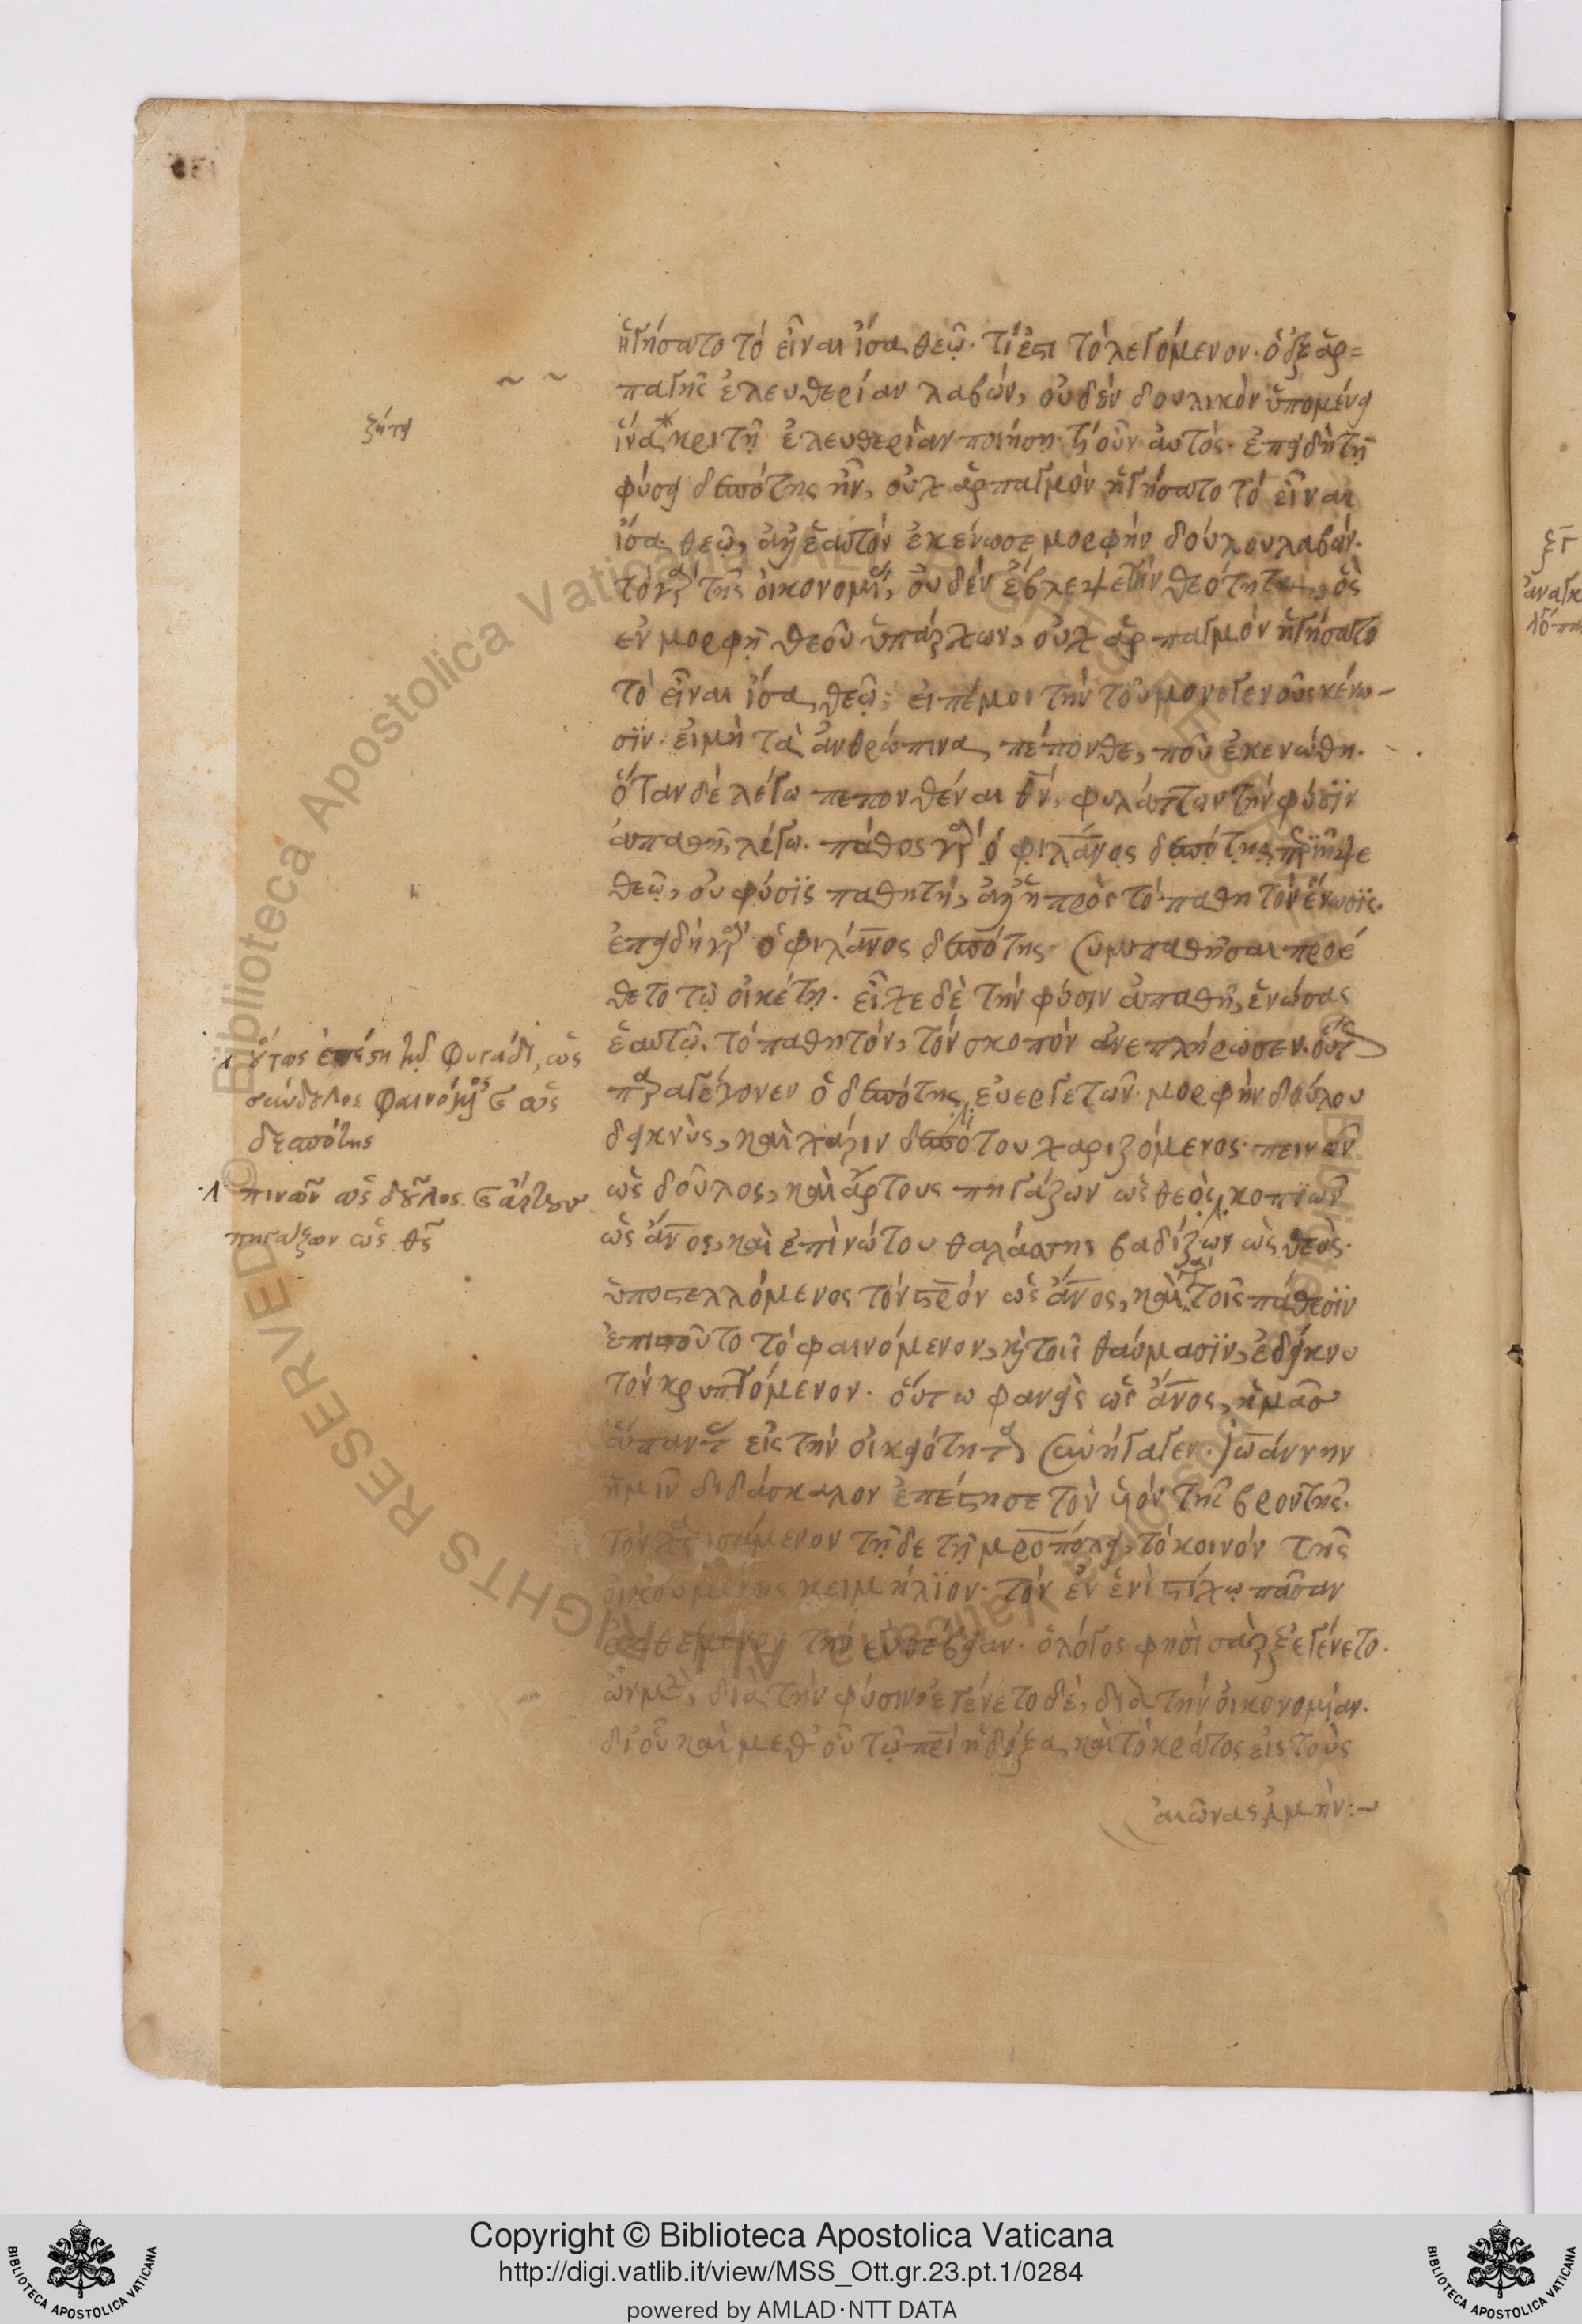 ἡγήσατο τὸ εἶναι ἴσα θεῷ· τί ἐστι τὸ λεγόμενον· ὁ ἐξ ἁρ=
παγῆς ἐλευθερίαν λαβών, οὐδὲν δουλικὸν ὑπομένει
ζήτει
ἵνα κριτῇ ἐλευθερίαν ποιήσῃ· τί οὖν αὐτός· ἐπειδὴ τῇ
φύσει δεσπότης ἦν, οὐχ ἁρπαγμὸν ἡγήσατο τὸ εἶναι
ἴσα θεῷ, ἀλλ' ἑαυτὸν ἐκένωσε μορφὴν δούλου λαβών·
τῆς οἰκονομίας, οὐδὲν ἔβλεψε τὴν θεότητα, ὃς
ἐν μορφῇ θεοῦ ὑπάρχων, οὐχ ἁρπαγμὸν ἡγήσατο
τὸ εἶναι ἴσα θεῷ· εἰπέ μοι τὴν τοῦ μονογενοῦς κένω-
σϊν· εἰ μὴ τὰ ἀνθρώπινα πέπονθε, ποῦ ἐκενώθη·
ὅταν δὲ λέγω πεπονθέναι θν, φυλάττων τὴν φύσϊν
ἀπαθῆ λέγω· πάθος γὰρ ὁ φιλανος δεσπότης
θεῷ, οὐ φύσϊς παθητή, ἀλλ' ἡ πρὸς τὸ παθητὸν ἕνωσϊς·
ἐπειδὴ γὰρ ὁ φιλανος δεσπότης συμπαθῆσαι προέ
θετο τῷ οἰκέτῃ· εἶχε δὲ τὴν φύσιν ἀπαθῆ, ἑνώσας
ἑαυτῷ τὸ παθητόν, τὸν σκοπὸν ἀνεπλήρωσεν· οὕτως
παραγέγονεν ὁ δεσπότης εὐεργετῶν· μορφὴν δούλου
δεικνύς, καὶ χάριν δεσπότου χαριζόμενος· πεινῶν
ὡς δοῦλος, καὶ ἄρτους πηγάζων ὡς θεός· κοπιῶν
ὡς ανος, καὶ ἐπὶ νώτου θαλάσσης βαδίζων ὡς θεός·
ὑποστελλόμενος τὸν στρὸν ὡς ανος, καὶ τοῖς πάθεσϊν
ἐπιστοῦτο τὸ φαινόμενον, καὶ τοῖς θαύμασϊν, ἐδείκνυ
τὸν κρυπτόμενον· οὕτω φανεὶς ὡς ανος, ἡμᾶς
ἅπαντας εἰς τὴν οἰκειότητα συνήγαγεν· Ἰωάννην
ἡμῖν διδάσκαλον ἐπέστησε τὸν υἱὸν τῆς βροντῆς·
τὸν χαρισάμενον τῇδε τῇ μροπόλει, τὸ κοινὸν τῆς
οἰκουμένης κειμήλϊον· τὸν ἐν ἑνὶ στίχῳ πᾶσαν
ἐκθέμενον τὴν εὐσέβειαν· ὁ λόγος φησὶ σὰρξ ἐγένετο·
ὢν μὲν, διὰ τὴν φύσιν· ἐγένετο δέ, διὰ τὴν οἰκονομίαν·
δι' οὗ καὶ μεθ' οὗ τῷ πρὶ ἡ δόξα καὶ τὸ κράτος εἰς τοὺς
αἰῶνας ἀμήν:~
οὕτως ἐπέστη τῷ φυγάδι, ὡς
σύνδουλος φαινόμενος καὶ ὡς
δεσπότης
πινῶν ὡς δοῦλος καὶ ἄρτους
πηγάζων ὡς θς
© Biblioteca Apostolica Vaticana ALL RIGHTS RESERVED
Copyright © Biblioteca Apostolica Vaticana
http://digi.vatlib.it/view/MSS_Ott.gr.23.pt.1/0284
powered by AMLAD·NTT DATA
BIBLIOTECA APOSTOLICA VATICANA
BIBLIOTECA APOSTOLICA VATICANA